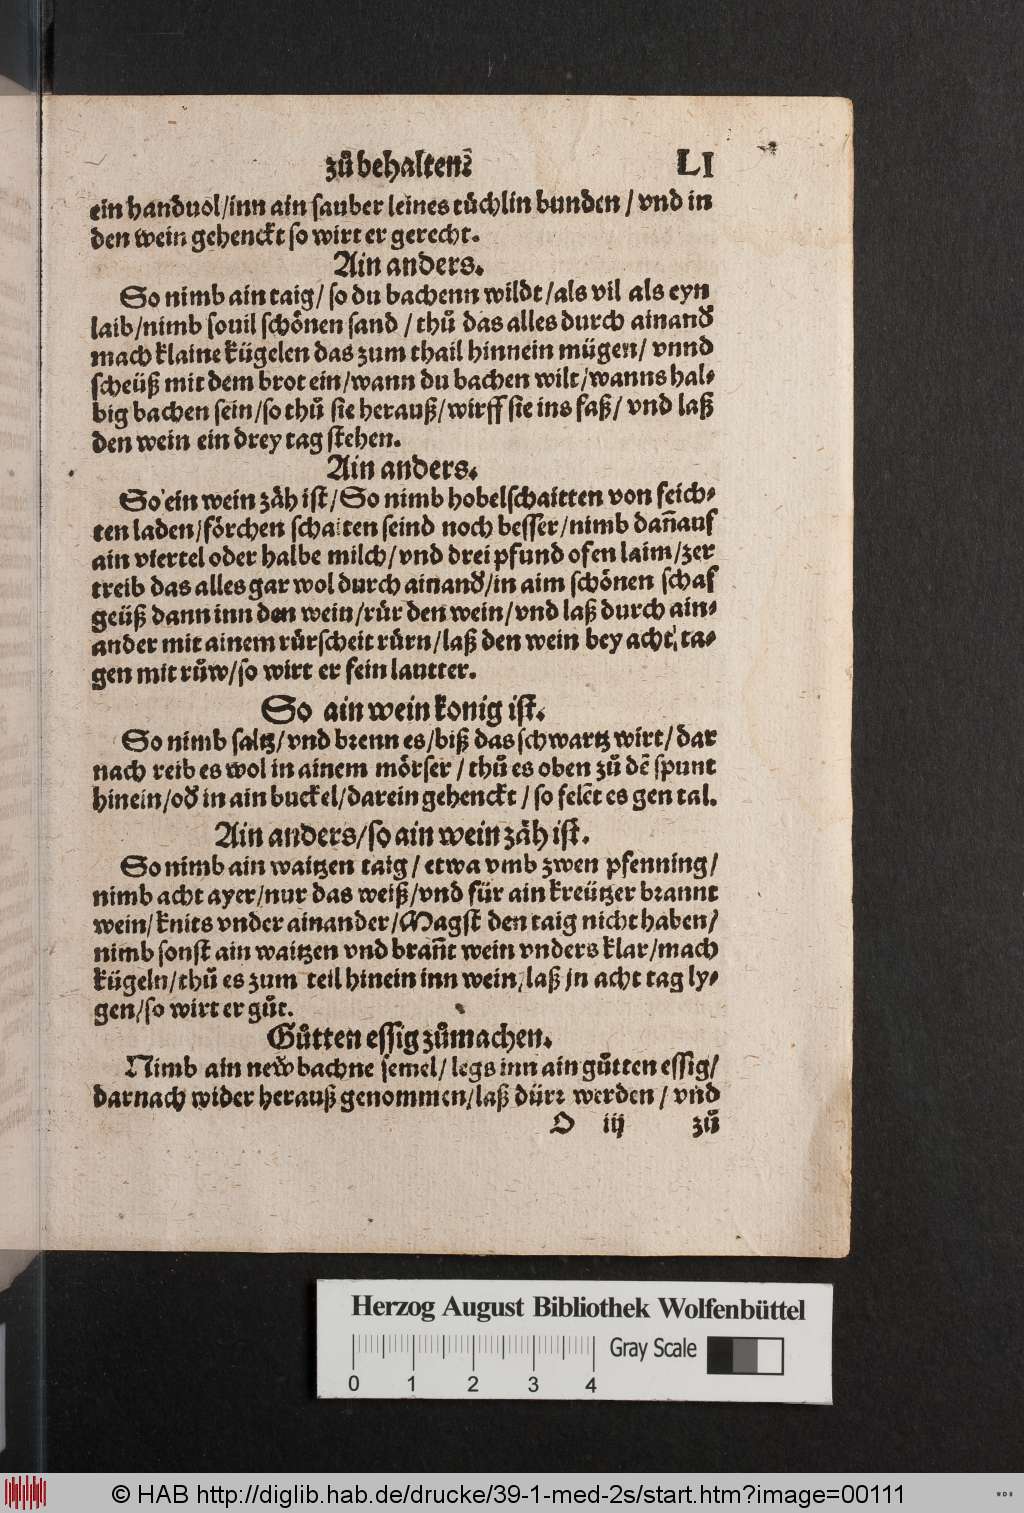 zů behalten? LI
ein handuol/inn ain sauber leines tůchlin bunden / vnd in
den wein gehenckt so wirt er gerecht.
Ain anders.
So nimb ain taig/ so du bachenn wildt/als vil als eyn
laib/nimb souil schönen sand / thů das alles durch ainand
mach klaine kügelen das zum thail hinnein mügen/ vnnd
scheüß mit dem brot ein/wann du bachen wilt/wanns hal⸗
big bachen sein/so thů sie herauß/wirff sie ins faß/ vnd laß
den wein ein drey tag stehen.
Ain anders.
So ein wein zäh ist/So nimb hobelschaitten von feich⸗
ten laden/förchen schaiten seind noch besser/nimb dañ auf
ain viertel oder halbe milch/vnd drei pfund ofen laim/zer
treib das alles gar wol durch ainand/in aim schönen schaf
geüß dann inn den wein/růr den wein/vnd laß durch ain⸗
ander mit ainem růrscheit růrn/laß den wein bey acht ta⸗
gen mit růw/so wirt er fein lautter.
So ain wein konig ist.
So nimb saltz/vnd brenn es/biß das schwartz wirt/dar
nach reib es wol in ainem mörser / thů es oben zů dē spunt
hinein/od in ain buckel/darein gehenckt / so felēt es gen tal.
Ain anders/so ain wein zäh ist.
So nimb ain waitzen taig/ etwa vmb zwen pfenning/
nimb acht ayer/nur das weiß/vnd für ain kreützer brannt
wein/knits vnder ainander/Magst den taig nicht haben/
nimb sonst ain waitzen vnd brañt wein vnders klar/mach
kügeln/thů es zum teil hinein inn wein/laß jn acht tag ly⸗
gen/so wirt er gůt.
Gůtten essig zůmachen.
Nimb ain new bachne semel/ legs inn ain gůtten essig/
darnach wider herauß genommen/laß dürr werden / vnd
O iij zů
Herzog August Bibliothek Wolfenbüttel
Gray Scale
0 1 2 3 4
© HAB http://diglib.hab.de/drucke/39-1-med-2s/start.htm?image=00111